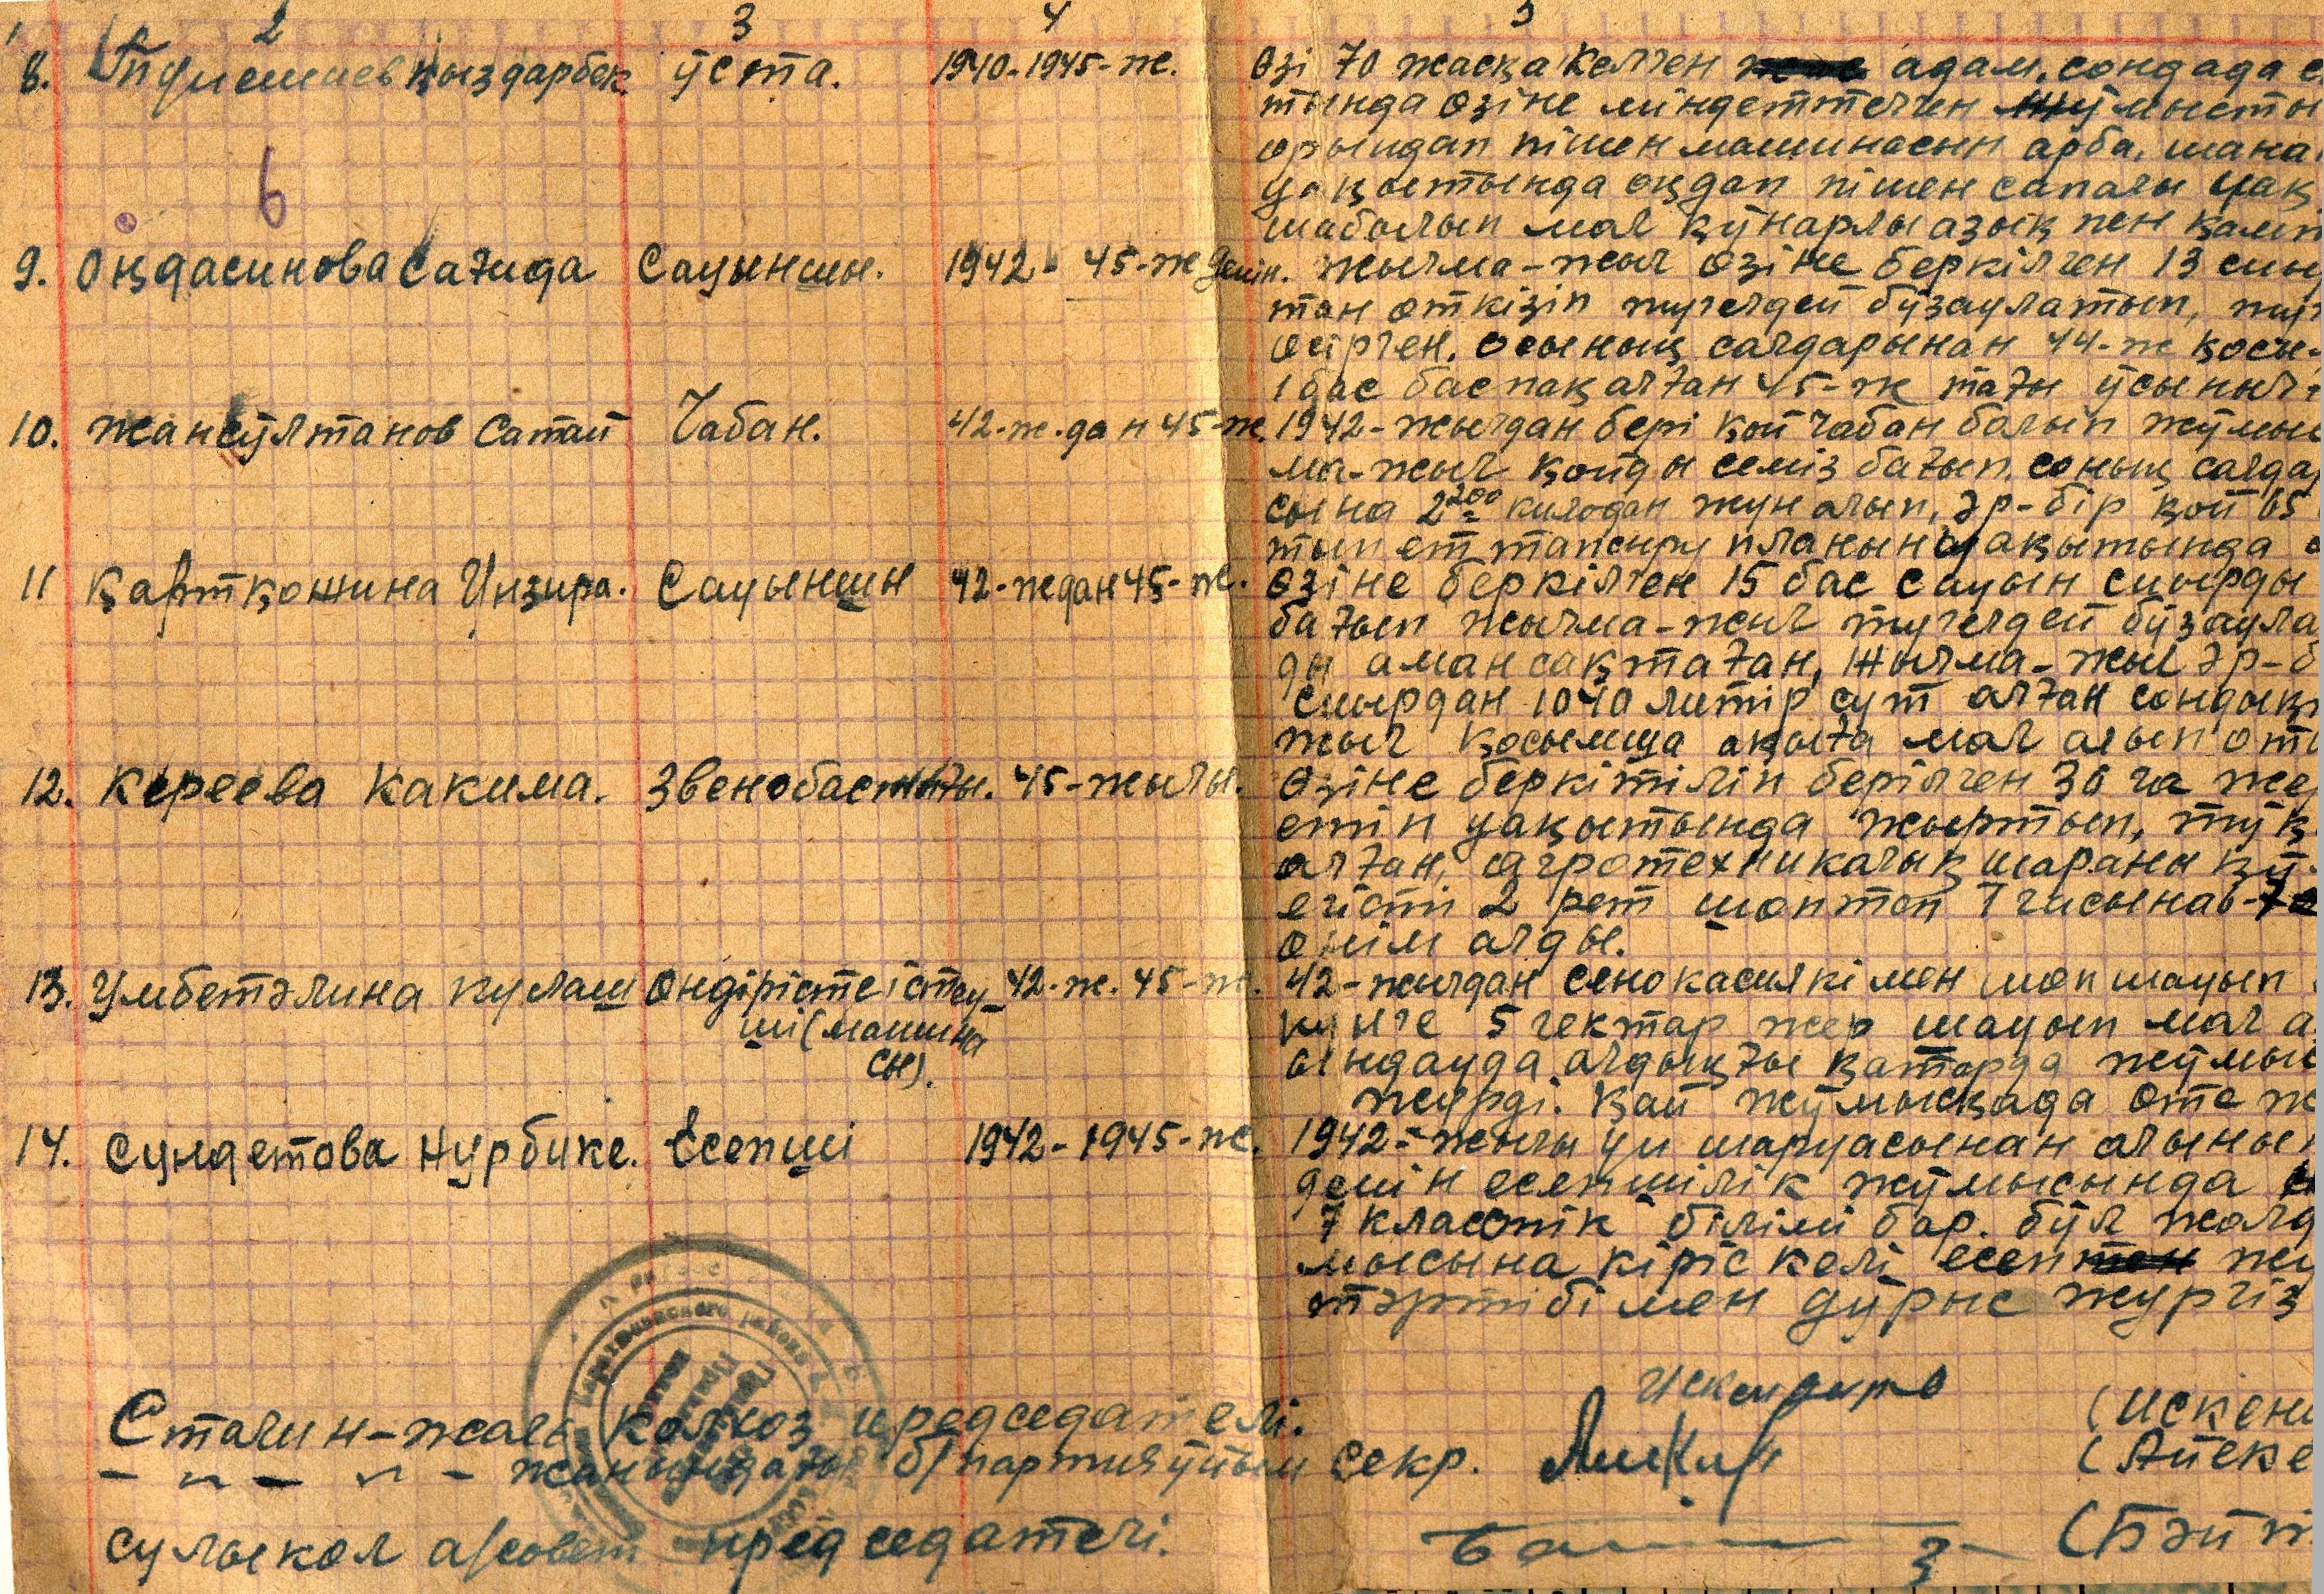 2 3 4 5
8. Қыздарбек ұста. 1940-1945-ж. Өзі 70 жасқа келген адам, сондада с
тында өзіне міндеттеген жұмысты
орындап пішен машинасын арба, шана
уақытында оңдап пішен сапалы уақ
6
шабылып мал құнарлы азық пен қамт
9. Оңдасинова Сағида Сауыншы. 1942-45-ж дейін. жылма-жыл өзіне беркілген 13 сиы
тан өткізіп түгелдей бұзаулатып, түг
өсірген. Осының салдарынан 44-ж қосы-
1 бас баспақ алған 45-ж тағы ұсыныл
10. Жансұлтанов Сатай Чабан. 42-ж.дан 45-ж. 1942-жылдан бері қой чабан болып жұмыс
ма-жыл қойды семіз бағып, соның салда
сына 2200 килодан жүн алып, әр-бір қой 65
тып ет тапсыру планын уақытында
11 Қартқожина Инзира. Сауыншы 42-ждан 45-ж. өзіне беркілген 15 бас сауын сиырды
бағып жылма-жыл түгелдей бұзаула
ды аман сақтаған, жылма-жыл әр-б
сиырдан 1040 литір сүт алған сондықт
жыл қосымша ақыға мал алып от
12. Кереева Какима. Звенобастығы. 45-жылы. Өзіне беркітіліп берілген 30 га же
етіп уақытында жыртып, тұқ
алған, агротехникалық шараны қ
егісті 2 рет шөптеп 1 гисынав-7
өнім алды.
13. Умбетәлина Кулаш Өндірісте істеу- 42-ж. 45-ж. 42-жылдан сенокасилкімен шөп шауып
ші (машина күнге 5 гектар жер шауып мал а
сы). ындауда алдыңғы қатарда жұмыс
жүрді. Қай жұмысқада өте ж
14. Сундетова Нурбике. Есепші 1942-1945-ж. 1942-жылы үй шаруасынан алынып
дейін есепшілік жұмысында
7 класстік білімі бар. бұл жолд
мысына кіріскелі есеп жү
тәртібімен дұрыс жүргіз
Сталин-жолы колхоз председателі. (Искен
- " - " - жанындағы б/партия ұйым секр. (Апеке
Сулыкол а/совет председателі. (Бәйт